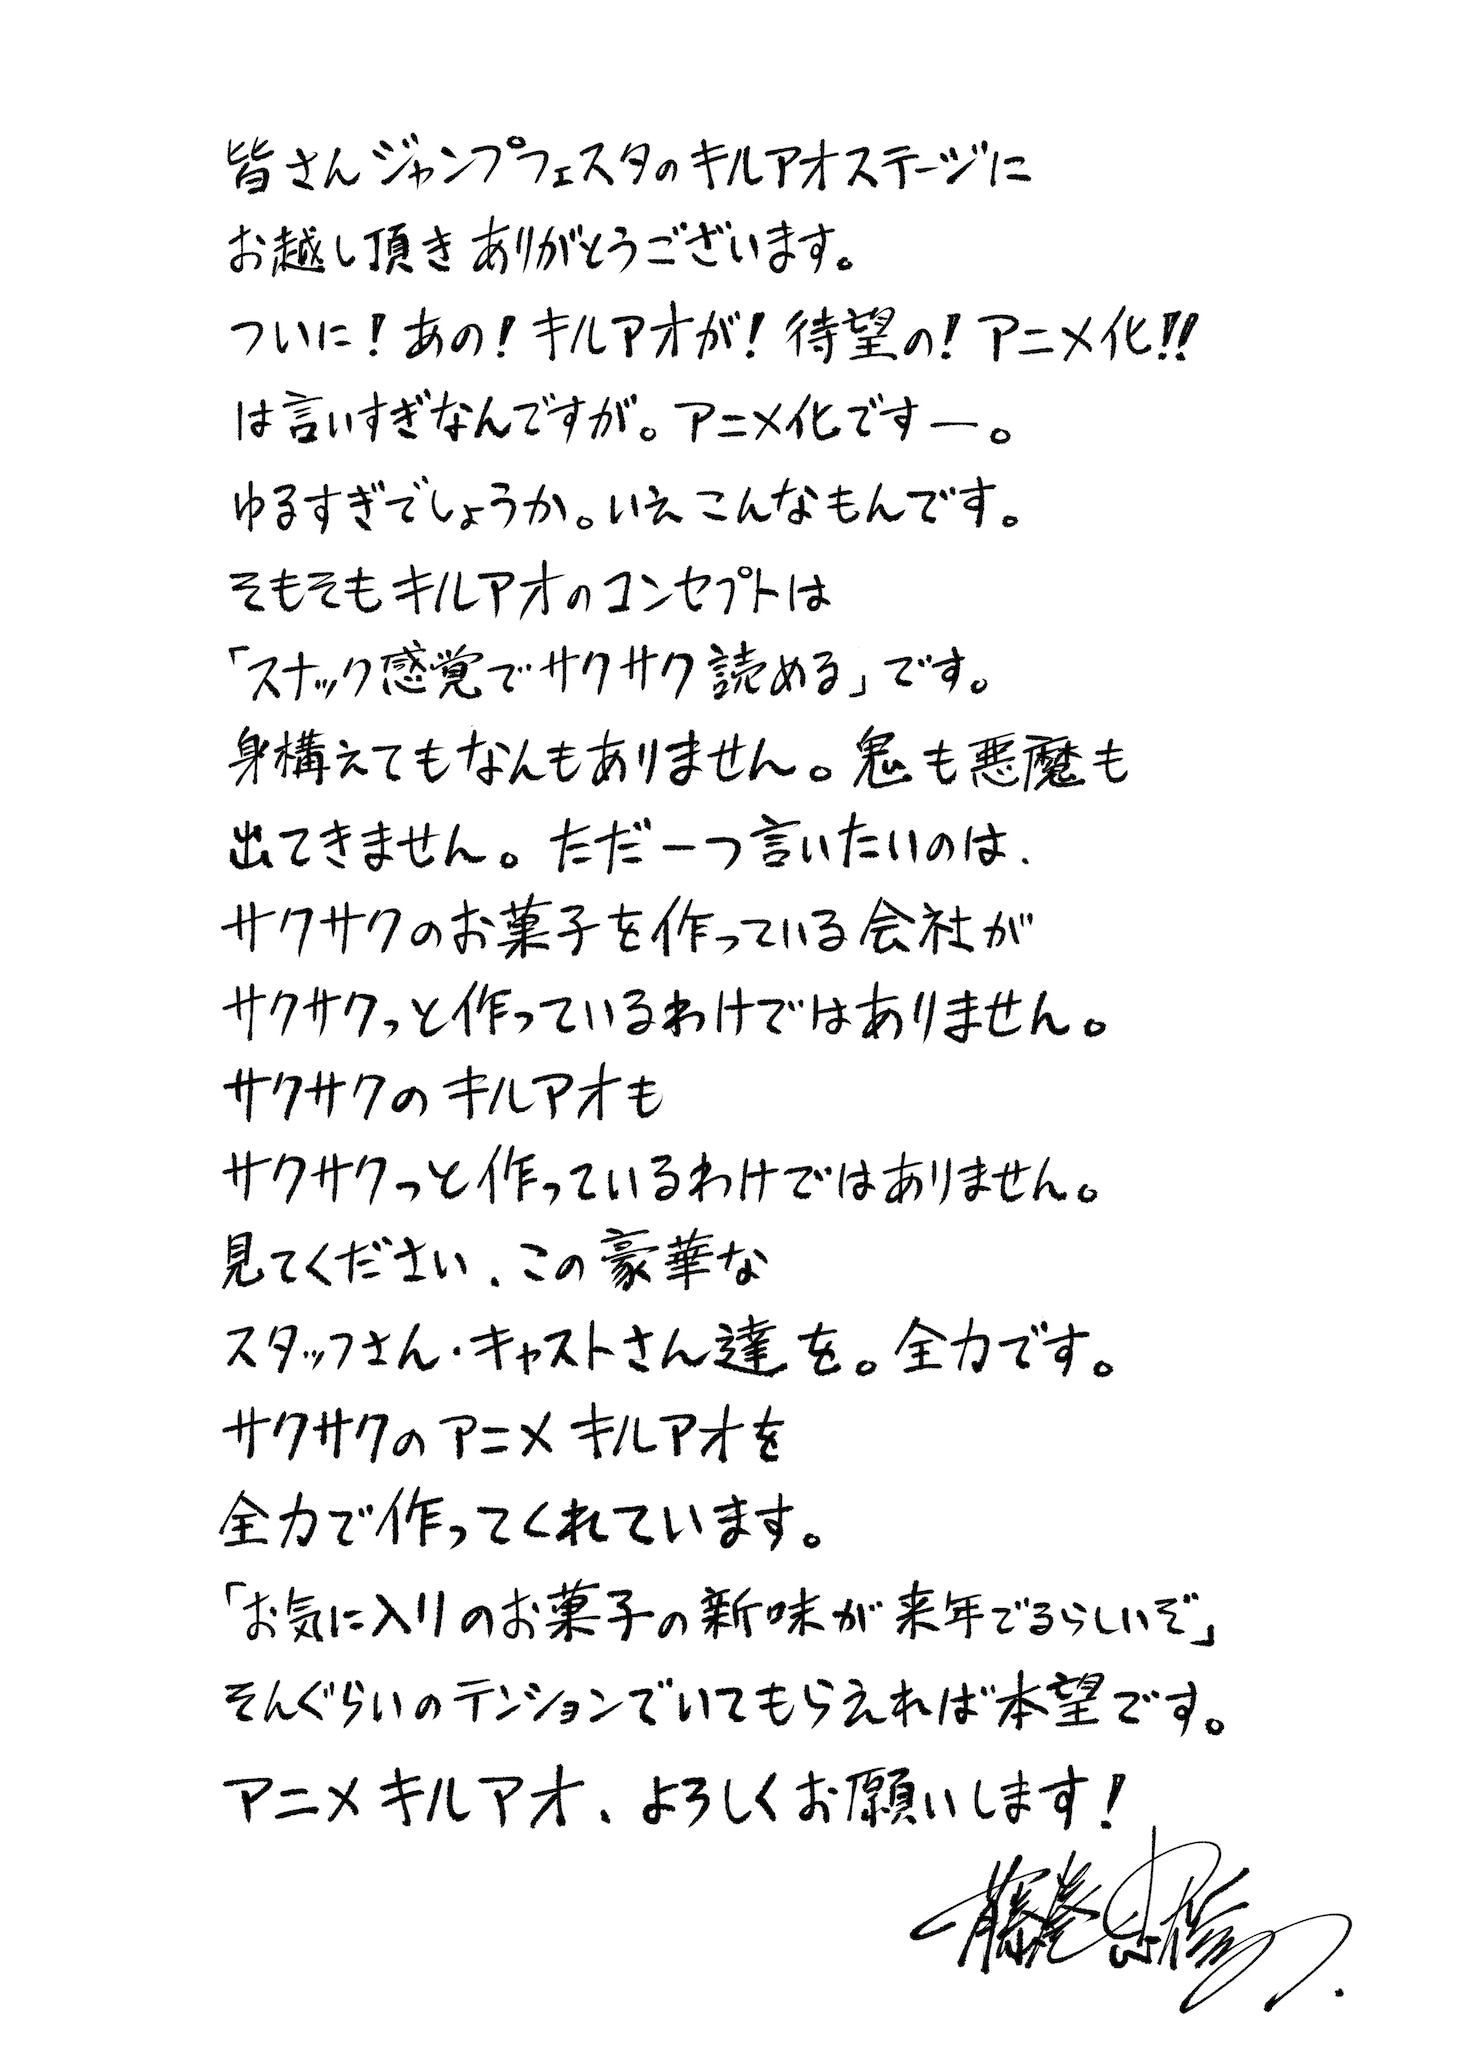 皆さんジャンプフェスタのキルアオステージに
お越し頂きありがとうございます。
ついに！あの！キルアオが！待望の！アニメ化!!
は言いすぎなんですが。アニメ化ですー。
ゆるすぎでしょうか。いえこんなもんです。
そもそもキルアオのコンセプトは
「スナック感覚でサクサク読める」です。
身構えてもなんもありません。鬼も悪魔も
出てきません。ただ一つ言いたいのは、
サクサクのお菓子を作っている会社が
サクサクっと作っているわけではありません。
サクサクのキルアオも
サクサクっと作っているわけではありません。
見てください、この豪華な
スタッフさん・キャストさん達を。全力です。
サクサクのアニメキルアオを
全力で作ってくれています。
「お気に入りのお菓子の新味が来年でるらしいぞ」
そんぐらいのテンションでいてもらえれば本望です。
アニメキルアオ、よろしくお願いします！
藤巻忠俊